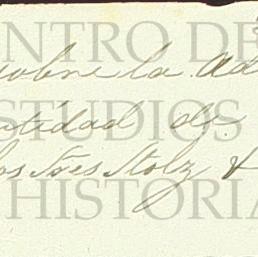 NTRO DE
sobre la Ad
STUDIOS
tidad de
los Sres Stolz &
HISTORIA